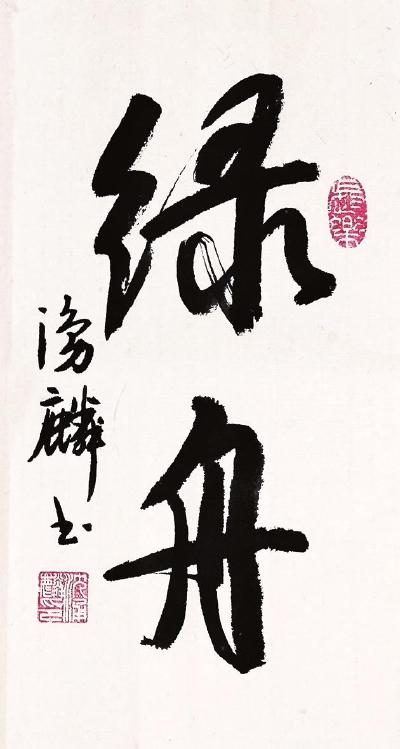 绿舟
湧麟书